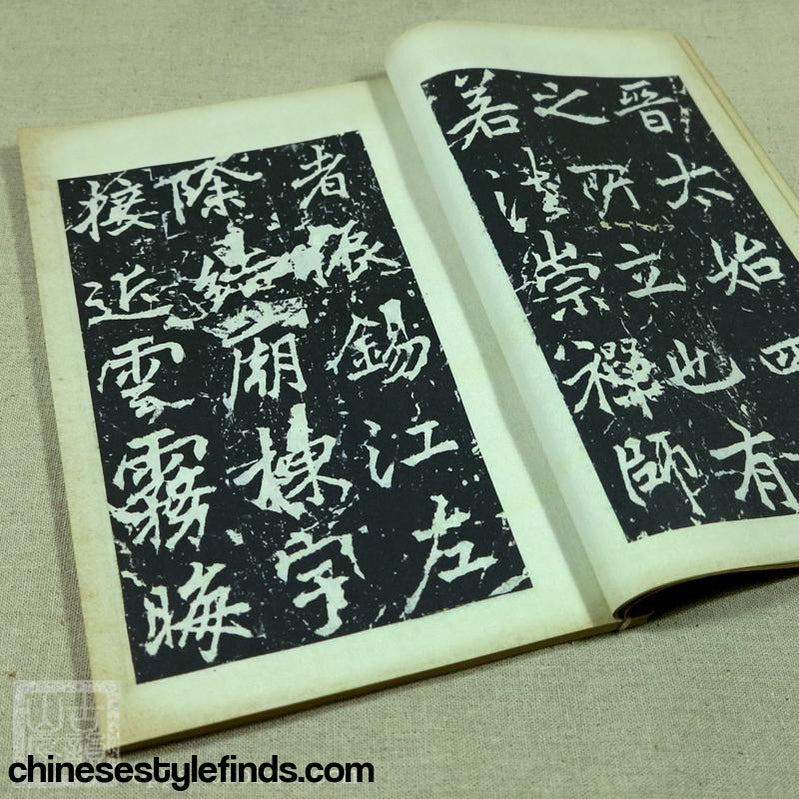 晉太始四
之所立也有
若法崇禪師
者振錫江左
除結廟棟宇
接近雲霧晦
chinesestylefinds.com